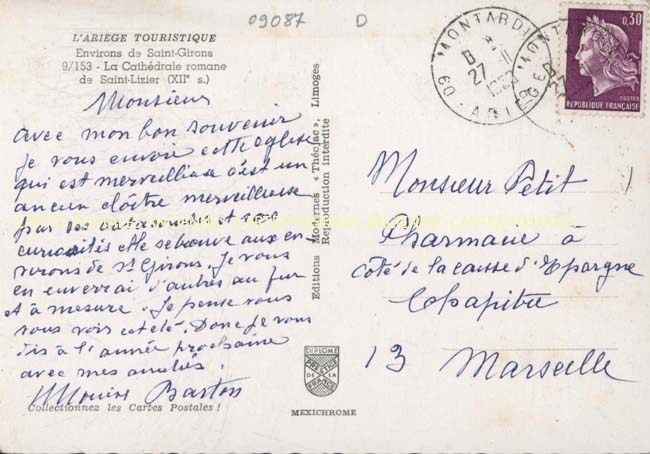 09087 D
L'ARIEGE TOURISTIQUE
Environs de Saint-Girons
9/153 - La Cathédrale romane
de Saint-Lizier (XIIe s.)
Monsieur
avec mon bon souvenir
je vous envoie cette eglise
qui est merveilleuse c'est un
ancien cloître merveilleuse
par ses catacombes et ses
curiosités elle se trouve aux en-
virons de St Girons. Je vous
en enverrai d'autres au fur
et à mesure. Je pense vous
vous voir cet été. Donc je vous
dis à l'année prochaine
avec mes amitiés.
Barton
Collectionnez les Cartes Postales !
Editions Modernes « Théojac », Limoges
Reproduction interdite
DIPLOME
PRESTIGE
DE LA
FRANCE
MEXICHROME
MONTARDI
27 - 11
09 - ARIEGE
0,30
POSTES
REPUBLIQUE FRANÇAISE
Monsieur Petit
Pharmacie à
côté de la caisse d'Epargne
Chapitre
13 Marseille